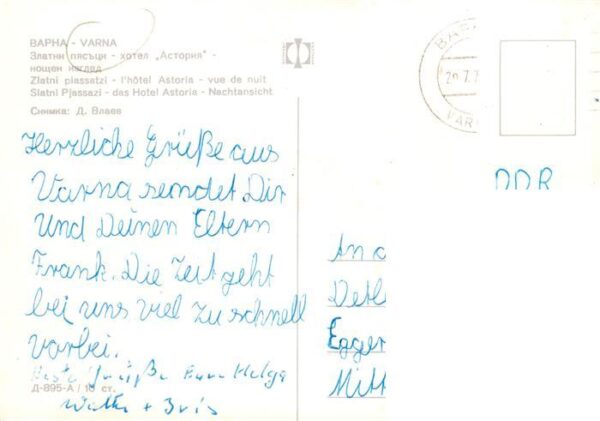 ВАРНА - VARNA
Златни пясъци - хотел „Астория" -
нощен изглед
Zlatni plassatzi - l'hôtel Astoria - vue de nuit
Slatni Pjassazi - das Hotel Astoria - Nachtansicht
Снимка: Д. Влаев
Herzliche Grüße aus
Varna sendet Dir
Und Deinen Eltern
Frank. Die Zeit geht
bei uns viel zu schnell
vorbei.
Grüße Helga
Д-895-А / 10 ст.
+
29.7.7
VAR
DDR
An
Detl
Egger
Mitt